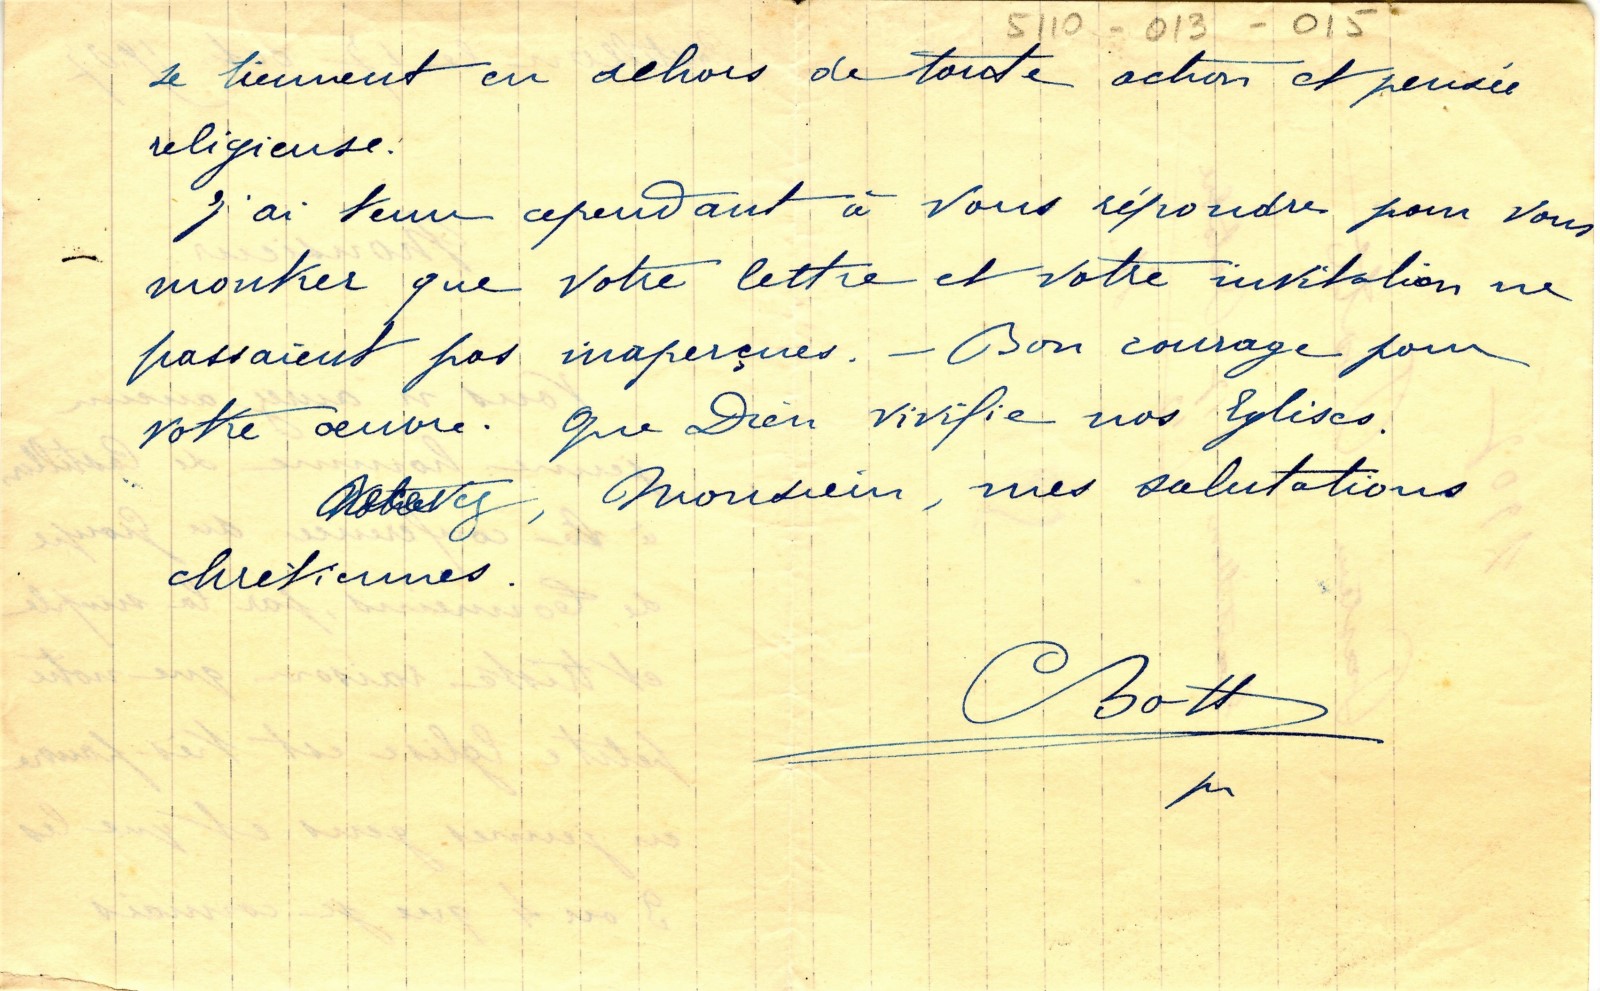 5/10 - 013 - 015
se tiennent en dehors de toute action et pensée
religieuse.
J'ai tenu cependant à vous répondre pour vous
montrer que votre lettre et votre invitation ne
passaient pas inaperçues. – Bon courage pour
votre œuvre. Que Dieu vivifie nos Eglises.
, Monsieur, mes salutations
chrétiennes.
CBott
pr